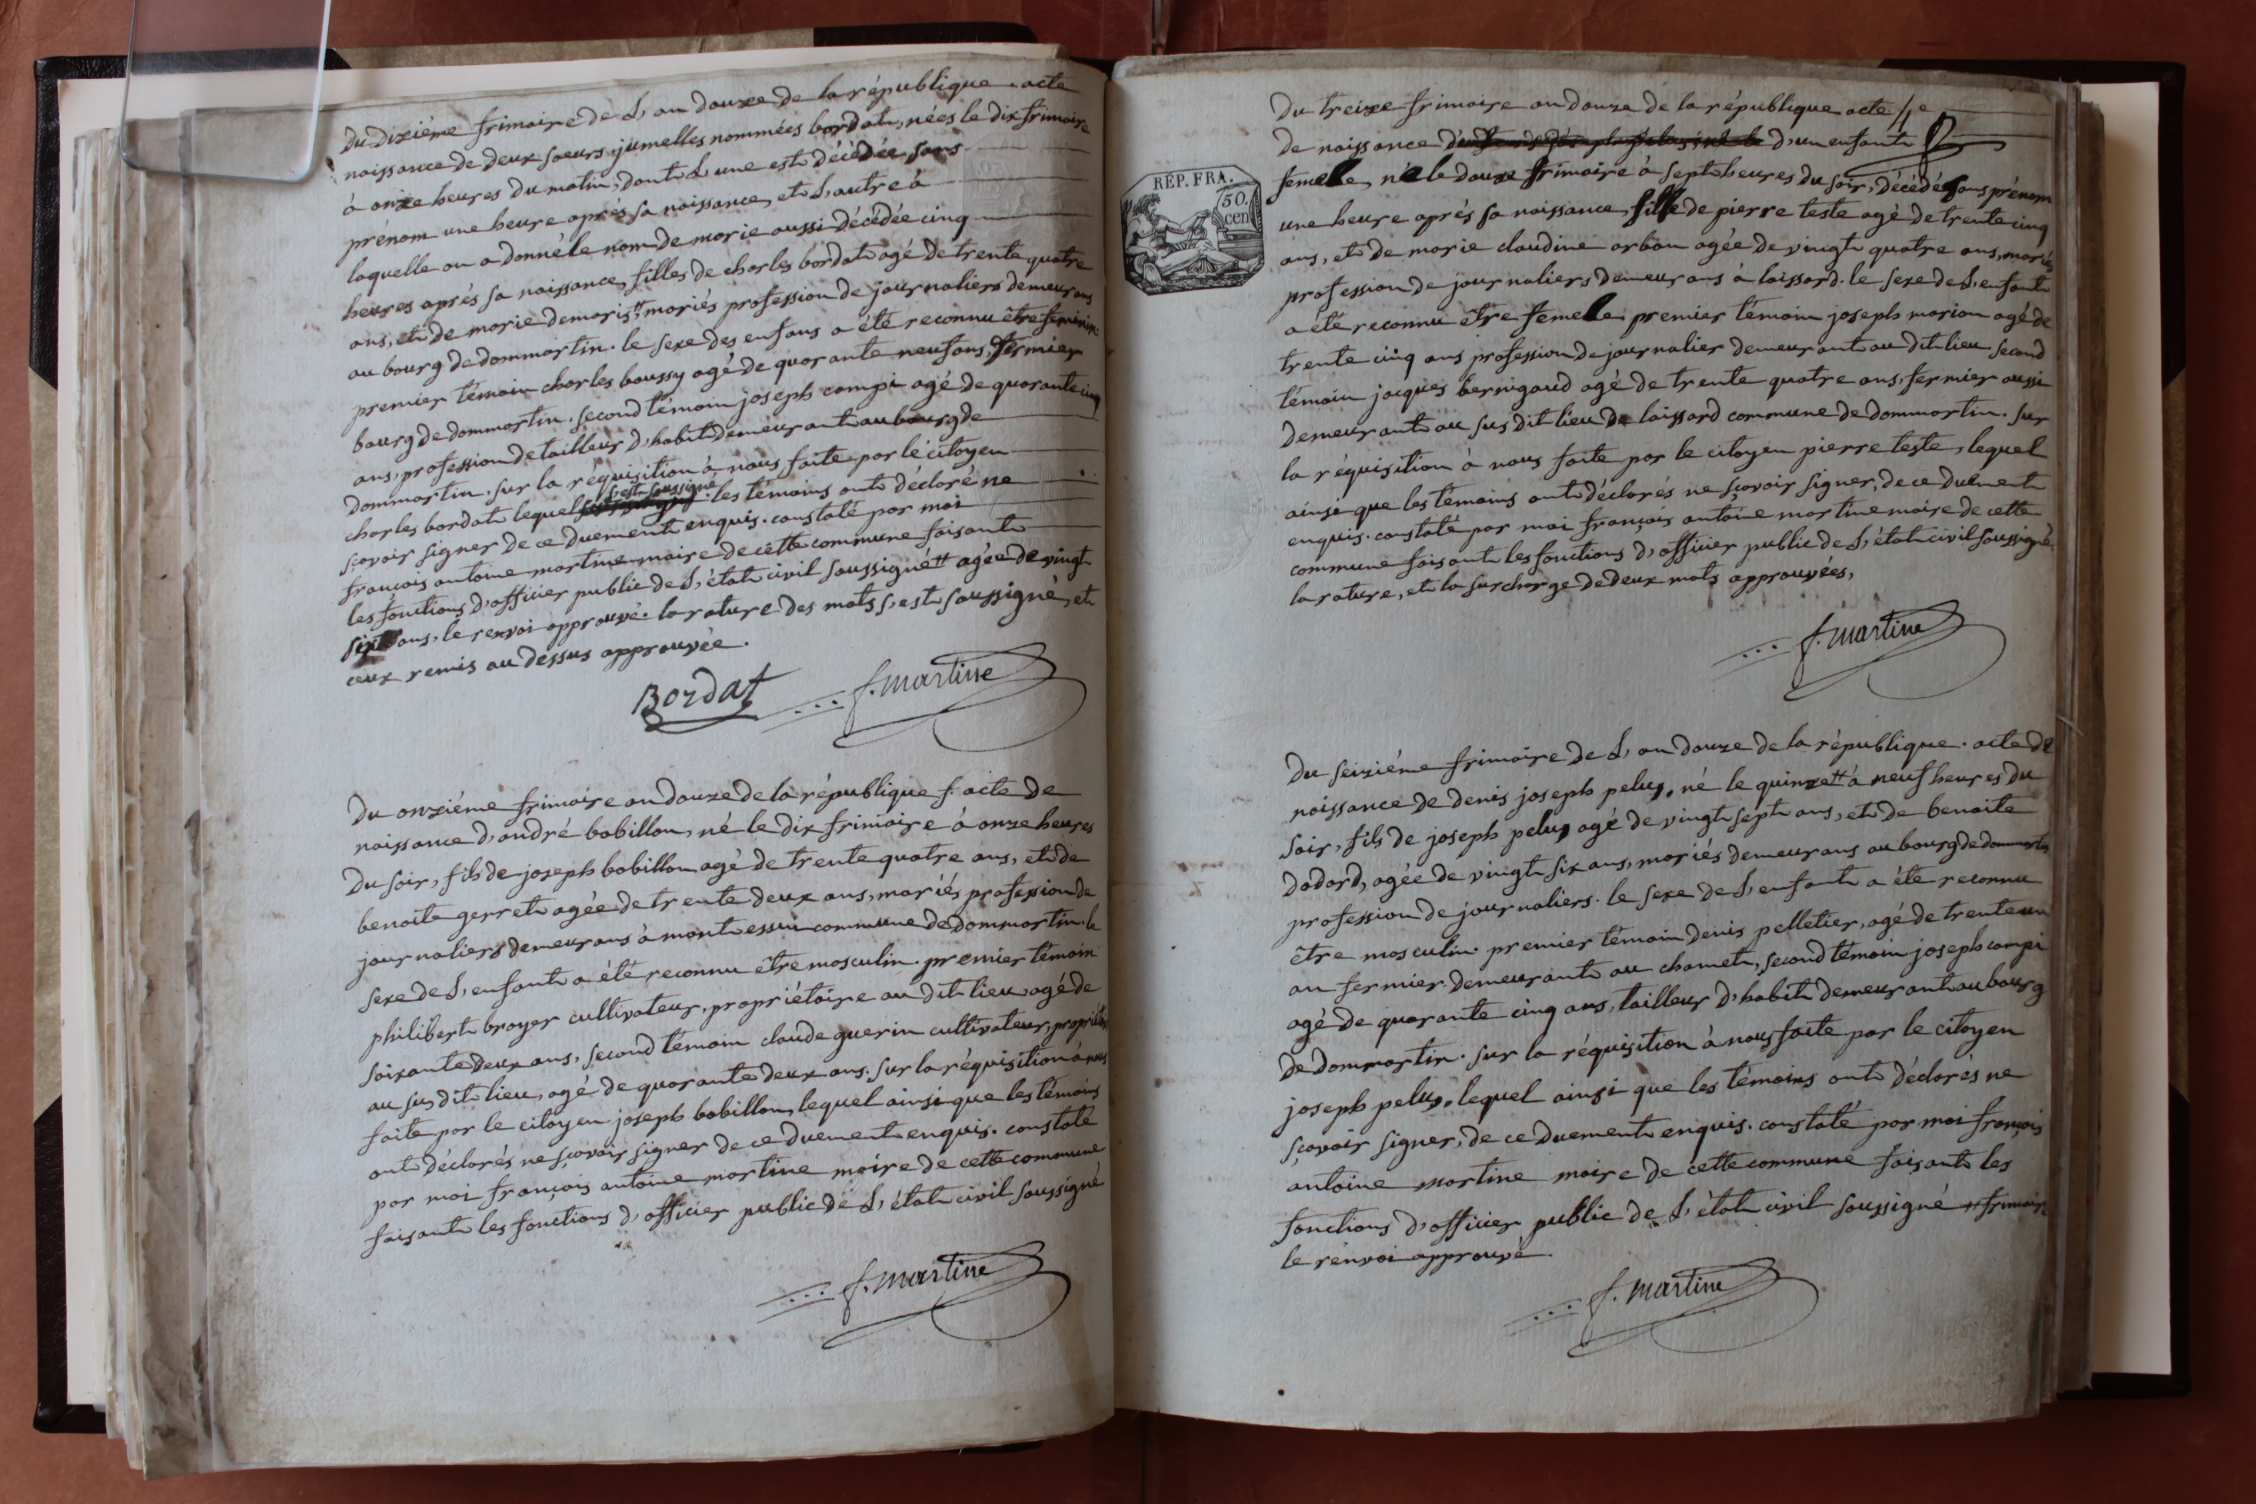 Du dixiéme frimaire de L'an douze de la république. acte
naissance de deux soeurs jumelles nommées bordat, nées le dix frimaire
à onze heures du matin, dont L'une est décèdée sans
prénom une heure aprés sa naissance, et L'autre à
laquelle on a donné le nom de marie aussi décèdée cinq
heures aprés sa naissance, filles de charles bordat agé de trente quatre
ans, et de marie demaris# mariés profession de journaliers demeurans
au bourg de dommartin. le sexe des enfans a été reconnu être feminin.
premier témoin charles boussy agé de quarante neuf ans, fermier
bourg de dommartin. second témoin joseph compi agé de quarante cinq
ans, profession de tailleur d'habit demeurant au bourg de
dommartin. sur la réquisition à nous faite par le citoyen
s'est soussigné
charles bordat lequel les témoins ont déclaré ne
sçavoir signer de ce duement enquis. constaté par moi
françois antoine martine maire de cette commune faisant
les fonctions d'officier public de L'état civil soussigné # agée de vingt
six ans, le renvoi approuvé. la rature des mots s'est soussigné, et
ceux remis au dessus approuvée.
Bordat f. martine
Du onziéme frimaire an douze de la république acte de
naissance d'andré bobillon, né le dix frimaire à onze heures
du soir, fils de joseph bobillon agé de trente quatre ans, et de
benoite gerret agée de trente deux ans, mariés, profession de
journaliers demeurans à montessui commune de dommartin. le
sexe de L'enfant a été reconnu être masculin. premier témoin
philibert broyer cultivateur, propriétaire au dit lieu agé de
soixante deux ans, second témoin claude guerin cultivateur, propriétre
au susdit lieu, agé de quarante deux ans. sur la réquisition à nous
faite par le citoyen joseph bobillon, lequel ainsi que les témoins
ont déclarés ne sçavoir signer de ce duement enquis. constaté
par moi françois antoine martine maire de cette commune
faisant les fonctions d'officier public de L'état civil soussigné
f. martine
RÉP. FRA.
50. cen
Du treize frimaire an douze de la république acte
de naissance d'un enfant
femelle, née le douze frimaire à sept heures du soir, décèdée sans prénom
une heure aprés sa naissance, fille de pierre teste agé de trente cinq
ans, et de marie claudine arban agée de vingt quatre ans, mariés
profession de journaliers, demeurans à laissard. le sexe de L'enfant
a été reconnu être femelle. premier témoin joseph marion agé de
trente cinq ans profession de journalier demeurant au dit lieu second
témoin jacques bernigaud agé de trente quatre ans, fermier aussi
demeurant au susdit lieu de laissard commune de dommartin. sur
la réquisition à nous faite par le citoyen pierre teste, lequel
ainsi que les témoins ont déclarés ne sçavoir signer, de ce duement
enquis. constaté par moi françois antoine martine maire de cette
commune faisant les fonctions d'officier public de L'état civil soussigné.
la rature, et la surcharge de deux mots approuvées,
f. martine
Du seiziéme frimaire de L'an douze de la république. acte de
naissance de denis joseph pelus, né le quinze # à neuf heures du
soir, fils de joseph pelus agé de vingt sept ans, et de benoite
dodard, agée de vingt six ans, mariés demeurans au bourg de dommartin
profession de journaliers. le sexe de L'enfant a été reconnu
être masculin. premier témoin denis pelletier, agé de trente un
an fermier demeurant au chamet, second témoin joseph compi
agé de quarante cinq ans, tailleur d'habit demeurant au bourg
de dommartin. sur la réquisition à nous faite par le citoyen
joseph pelus, lequel ainsi que les témoins ont déclarés ne
sçavoir signer, de ce duement enquis. constaté par moi françois
antoine martine maire de cette commune faisant les
fonctions d'officier public de L'état civil soussigné # frimaire
le rénvoi approuvé.
f. martine